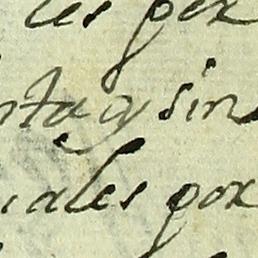 les por
nta y sin
iales por